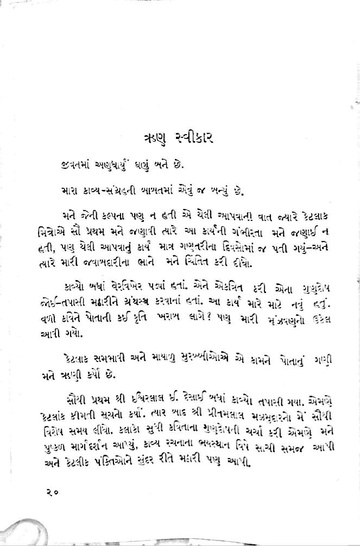 ઋણ સ્વીકાર
જીવનમાં અણધાર્યું ઘણું બને છે.
મારા કાવ્ય-સંગ્રહની બાબતમાં એવું જ બન્યું છે.
મને જેની કલ્પના પણ ન હતી એ થેલી આપવાની વાત જ્યારે કેટલાક
મિત્રોએ સૌ પ્રથમ મને જણાવી ત્યારે આ કાર્યની ગંભીરતા મને જણાઈ ન
હતી, પણ થેલી આપવાનું કાર્ય માત્ર ગણત્રીના દિવસોમાં જ પતી ગયું-અને
ત્યારે મારી જવાબદારીના ભાને મને ચિંતિત કરી દીધો.
કાવ્યો બધાં વેરવિખેર પડ્યાં હતાં. એને એકત્રિત કરી એના ગુણદોષ
જોઈ-તપાસી મઠારીને ગ્રંથસ્થ કરવાનાં હતાં. આ કાર્ય મારે માટે નવું હતું.
વળી કવિને પોતાની કઈ કૃતિ ખરાબ લાગે? પણ મારી મૂંઝવણનો ઉકેલ
આવી ગયો.
કેટલાક સમભાવી અને માયાળુ મુરબ્બીઓએ એ કામને પોતાનું ગણી
મને ઋણી કર્યો છે.
સૌથી પ્રથમ શ્રી ઇ. દેસાઈ બધાં કાવ્યો તપાસી ગયા. એમણે
કેટલાંક કીમતી સૂચનો કર્યાં. ત્યાર બાદ શ્રી પ્રીતમલાલ મઝમુદારનો મેં સૌથી
વિશેષ સમય લીધો. કલાકો સુધી કવિતાના ગુણદોષની ચર્ચા કરી એમણે મને
પુષ્કળ માર્ગદર્શન આપ્યું. કાવ્ય રચનાના ભયસ્થાન વિષે સાચી સમજ આપી
અને કેટલીક પંક્તિઓને સુંદર રીતે મઠારી પણ આપી.
૨૦